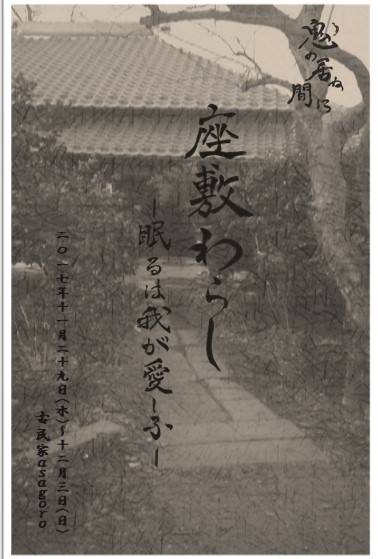 鬼の居ぬ間に
座敷わらし
－眠るは我が愛し子－
二〇一七年十一月二十九日（水）～十二月三日（日）
古民家asagoro